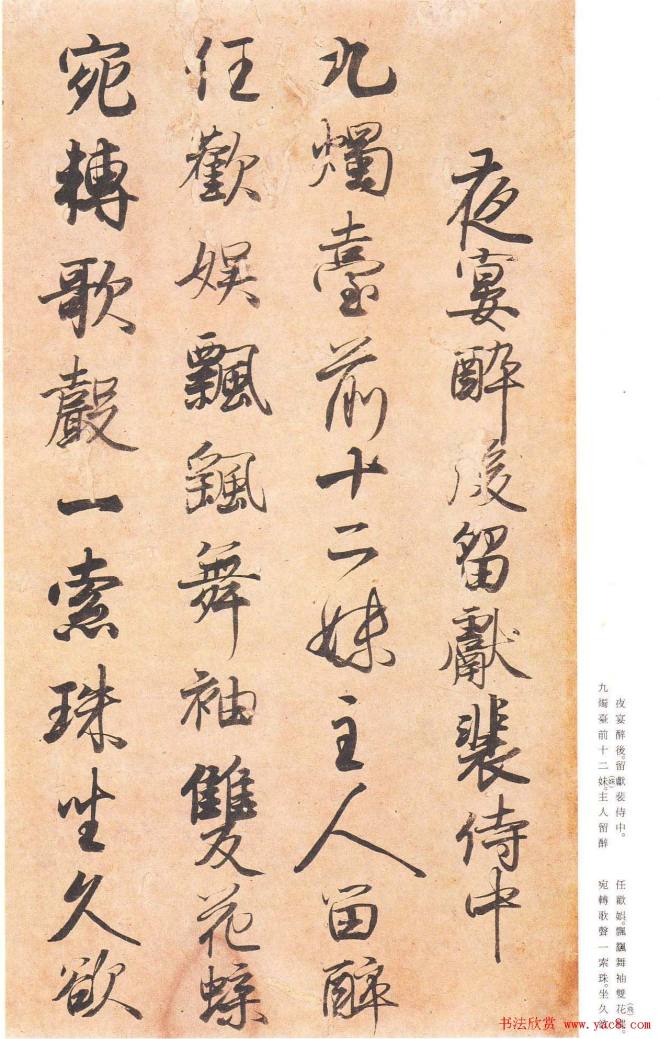 夜宴醉後留獻裴侍中
九燭臺前十二妹主人留醉
任歡娱飄飖舞袖雙花蝶
宛轉歌聲一索珠坐久欲
夜宴醉後。留獻裴侍中。
九燭臺前十二妹。(姝)主人留醉
任歡娯。飄颻舞袖雙花
宛轉歌聲一索珠。坐久
书法欣赏 www.yac8.com